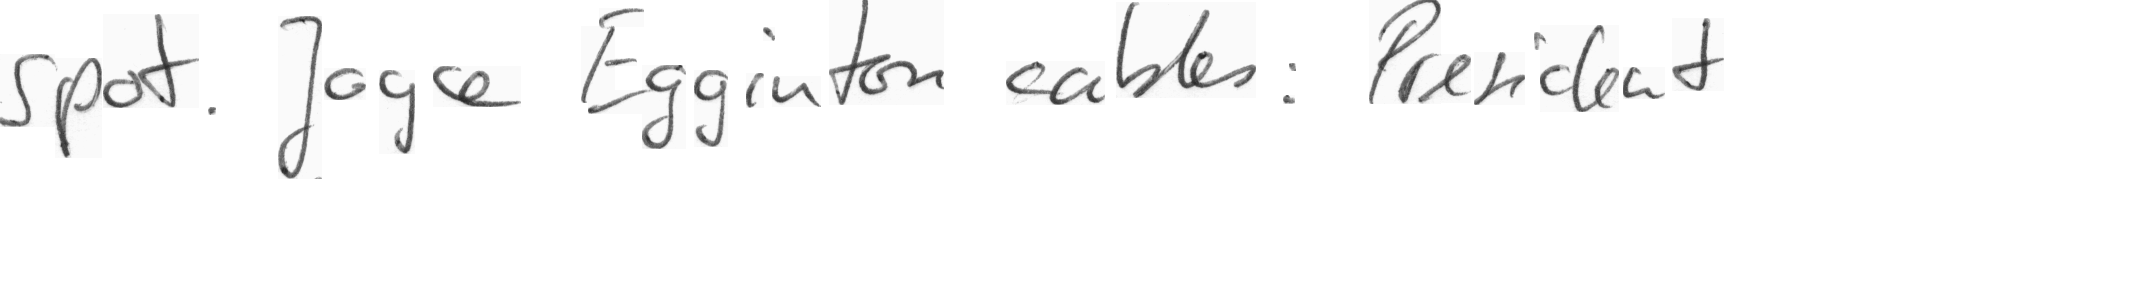 spot. Joyce Egginton cables: President